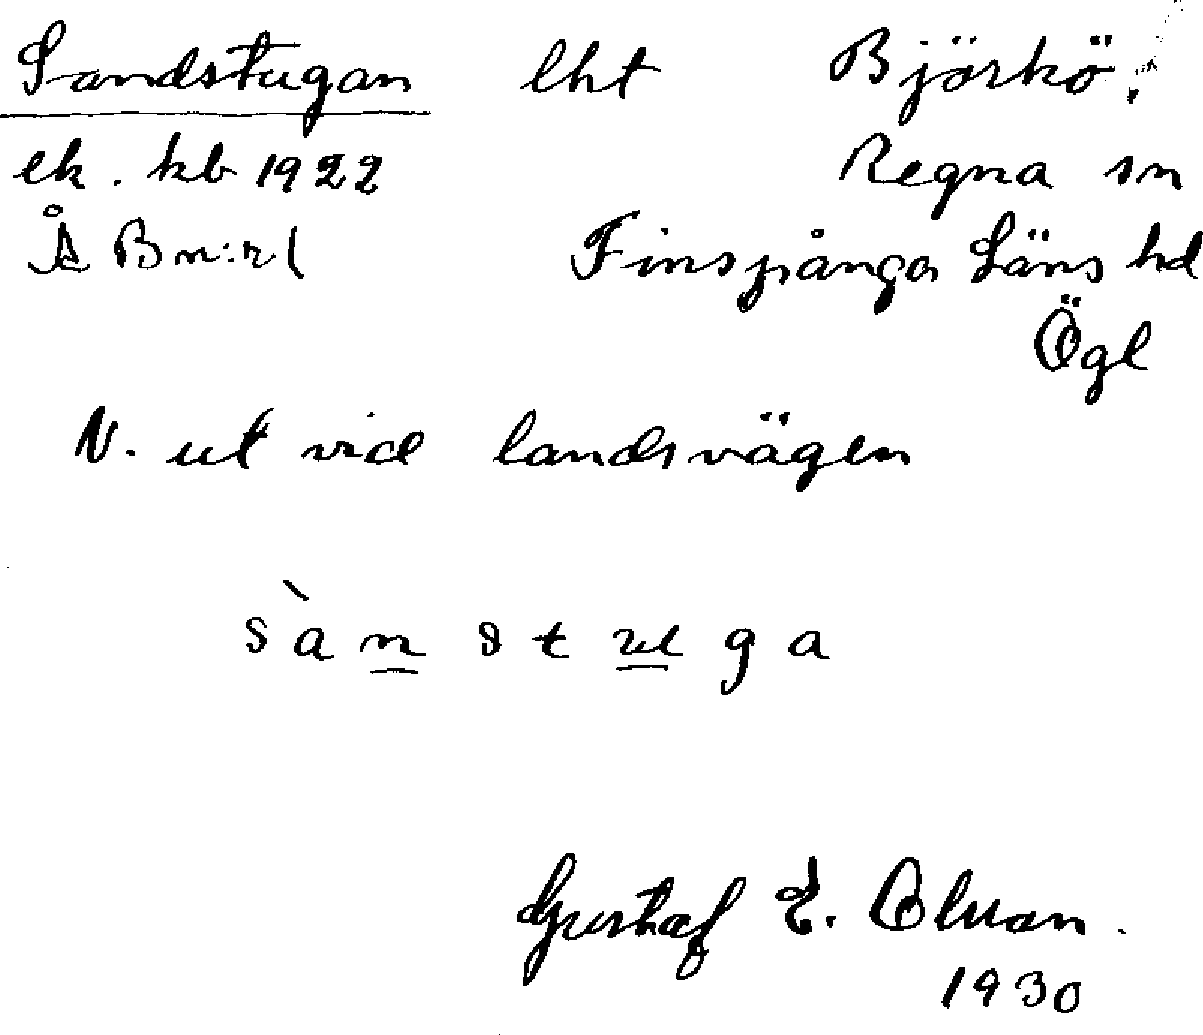 Sandstugan lht Björkö,
ek. kb 1922 Regna sn
Finspånga Läns hd
Ögl
N. ut vid landsvägen
sànstuga
Gustaf E.
1930